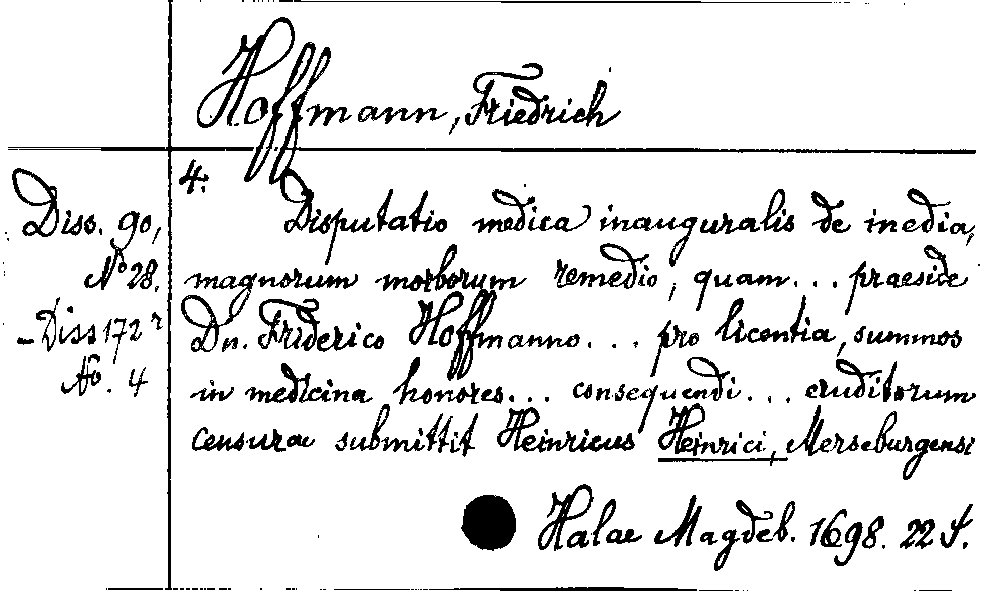 Hoffmann, Friedrich
4.
Diss. 90,
No 28.
- Diss 172 r
No. 4
Disputatio medica inauguralis de inedia,
magnorum morborum remedio, quam... praeside
Dn. Friderico Hoffmanno... pro licentia, summos
in medicina honores... consequendi... eruditorum
censurae submittit Heinricus Heinrici, Merseburgensi
Halae Magdeb. 1698. 22 S.